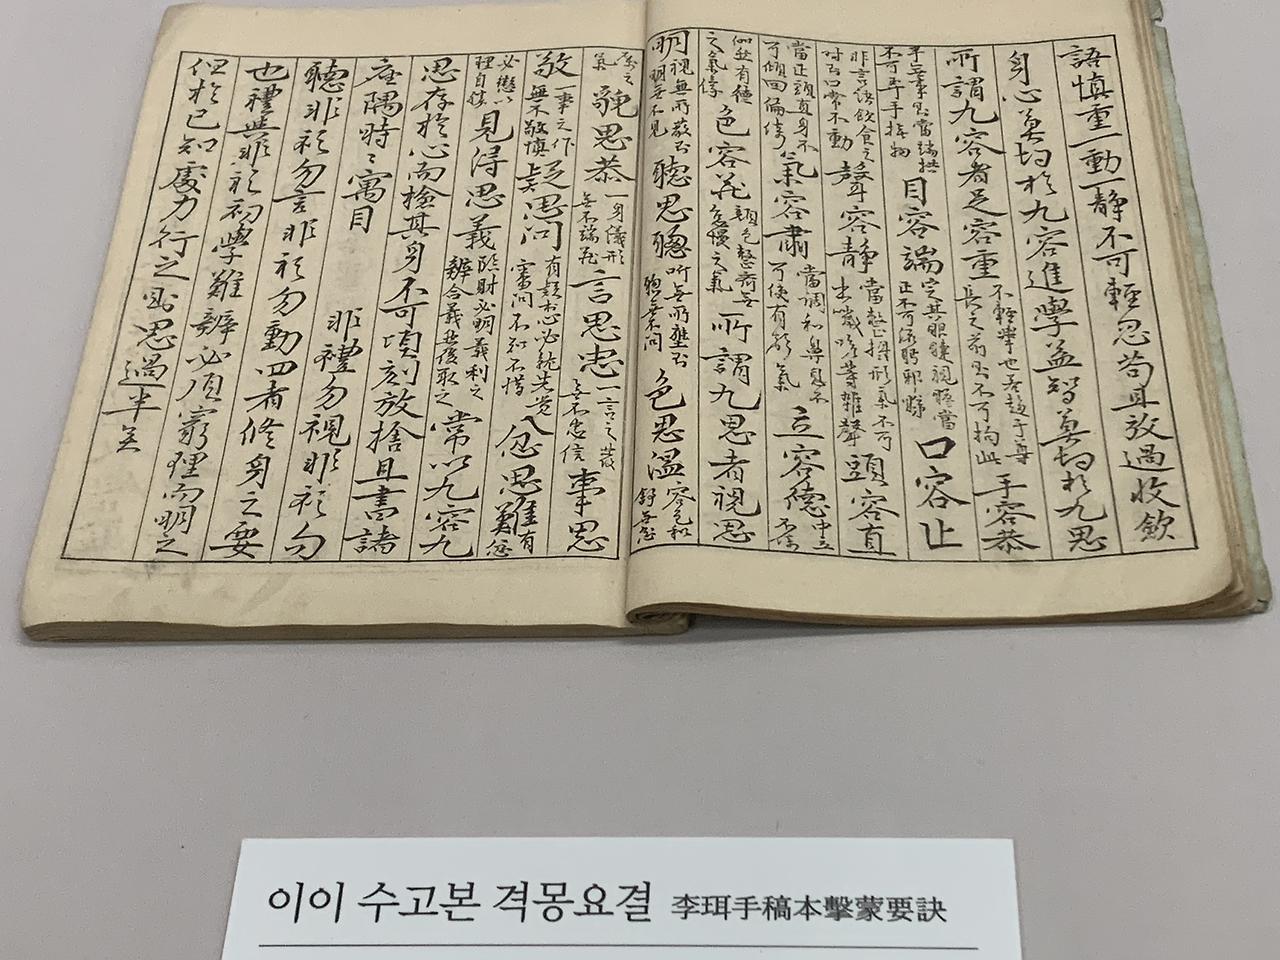 語慎重一動一静不可輕忽苟且放過收歛
身心莫切於九容進學益智莫切於九思
所謂九容者足容重不輕擧也若趨于尊長之前則不可拘此手容恭
手無事則當端拱不可弄手操物目容端定其眼睫視瞻當正不可流眄邪睇口容止
非言語飲食之時則口常不動聲容静當整攝形氣不可出噦咳等雜聲頭容直
當正頭直身不可傾回偏倚氣容肅當調和鼻息不可使有聲氣立容德中立不倚
儼然有德之氣像色容莊顔色整齊無怠慢之氣所謂九思者視思
明視無所蔽則明無不見聽思聰聽無所壅則聰無不聞色思溫容色和舒無忿
厲之氣貌思恭一身儀形無不端莊言思忠一言之發無不忠信事思
敬一事之作無不敬慎疑思問有疑于心必就先覺審問不知不措忿思難有忿
必懲以理自勝見得思義臨財必明義利之辨合義然後取之常以九容九
思存於心而檢其身不可頃刻放捨且書諸
座隅時〻寓目 非禮勿視非禮勿
聽非禮勿言非禮勿動四者修身之要
也禮與非禮初學難辨必須窮理而明之
但於已知處力行之則思過半矣
이이 수고본 격몽요결 李珥手稿本擊蒙要訣